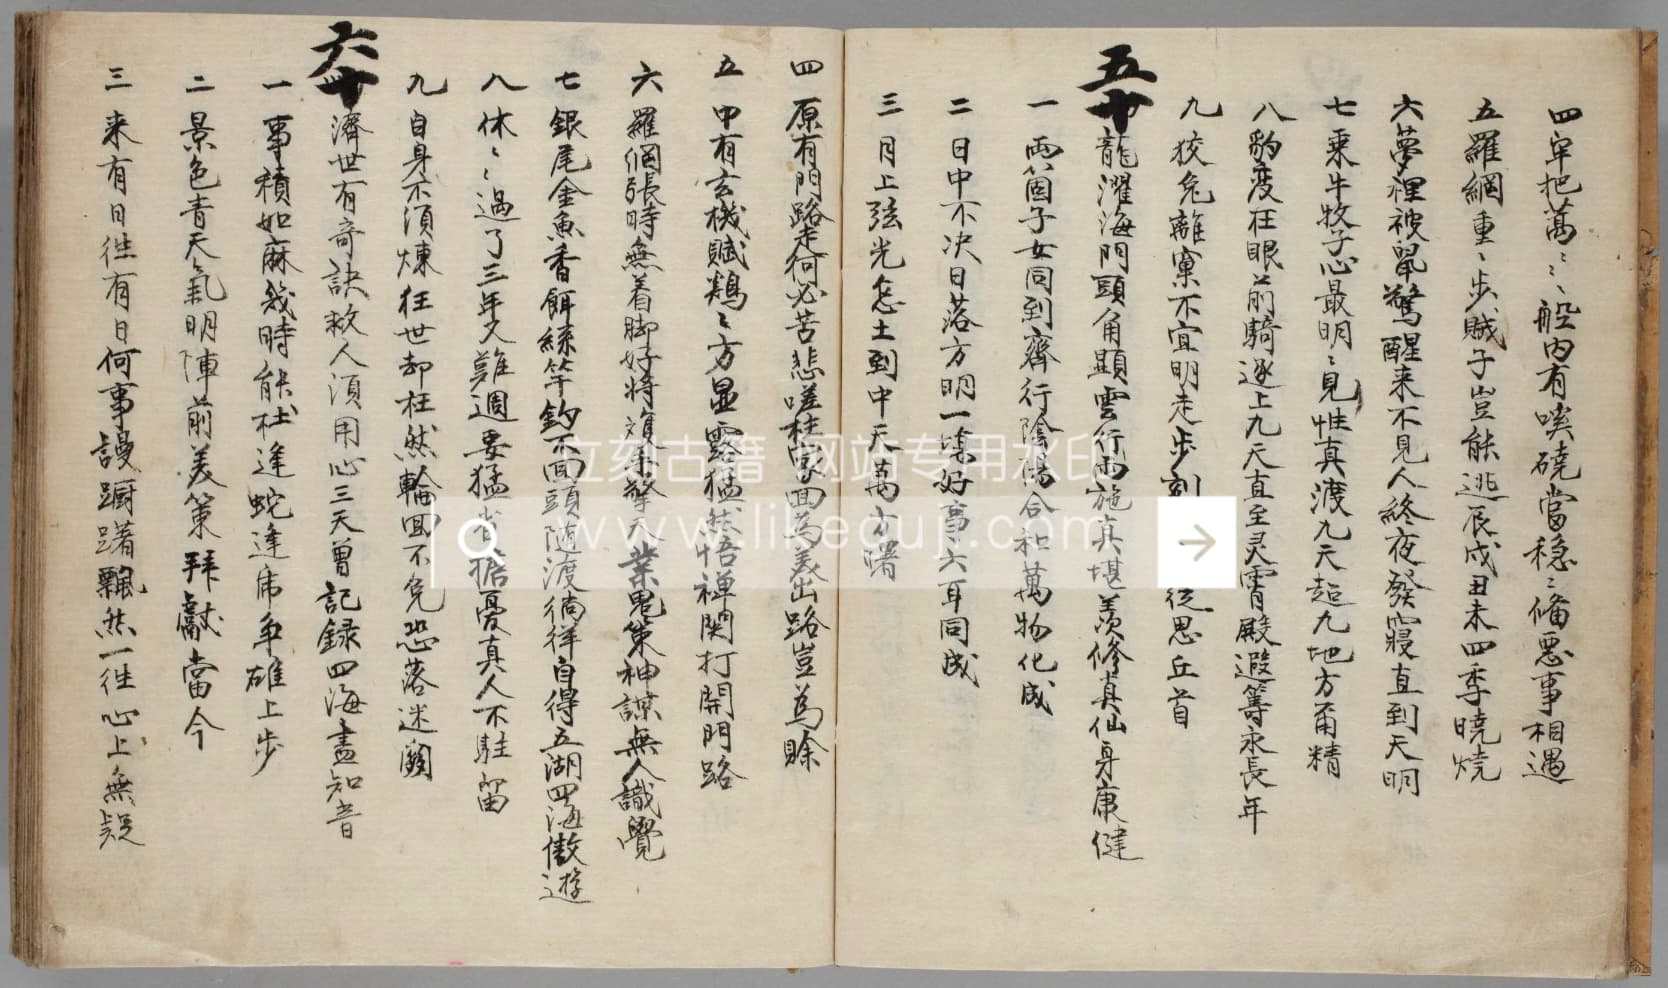 四 牢把萬〻〻船內有嘆磽當穏〻俻悪事相遇
五 羅綱重〻步賊子豈能逃辰戌丑未四季曉燒
六 夢裡被鼠驚醒来不見人終夜發寢直到天明
七 乘牛牧子心最明〻見惟真渡九天超九地方甬精
八 豹变在眼前騎逐上九天直至灵霄殿遐筭永長年
九 狡兔離窠不宜明走步刻 思丘首
五十 龍濯海門頭角顯雲行雨施真堪羨修真仙身康健
一 両箇子女同到齊行陰陽合和萬物化成
二 日中不决日落方明一塲好事六耳同成
三 月上弦光急土到中天萬方曙
四 原有門路走何必苦悲嗟枉 回為義出路豈為賒
五 中有玄機賦鷄〻方显露猛然悟禅関打開門路
六 羅網張時無着脚好将 擎天業鬼策神諒無人識覺
七 銀尾金魚香餌絲竿釣不回頭随渡徜徉自得五湖四海傲遊
八 休〻過了三年又難週要猛省 憂真人不駐留
九 自身不湏煉狂世却枉然輪回不免恐落迷關
六十 濟世有奇訣救人湏用心三天曾記録四海盡知音
一 事積如麻幾時能杜逢蛇逢席争雄上步
二 景色青天氣明陣前美策拜獻當今
三 来有日徃有日何事謾躕躇飄然一徃心上無疑
立刻古籍 网站专用水印
www.likeguji.com